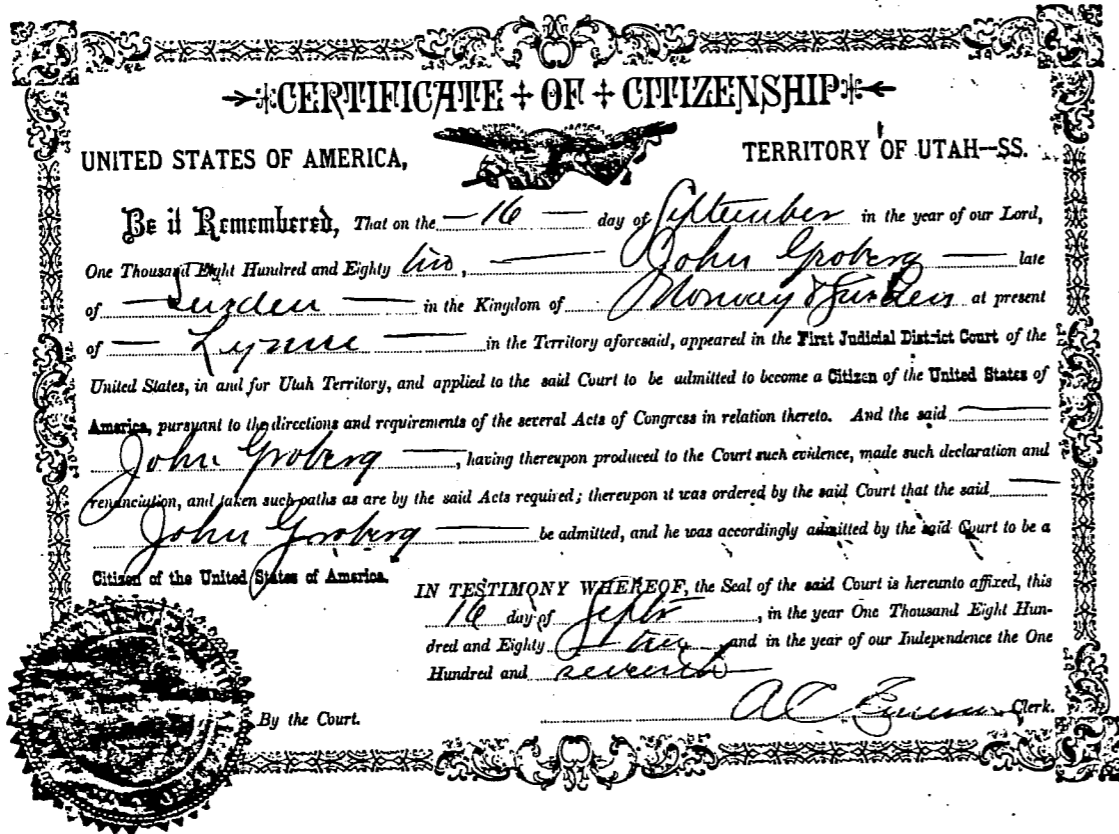 CERTIFICATE + OF + CITIZENSHIP
UNITED STATES OF AMERICA, TERRITORY OF UTAH—SS.
Be it Remembered, That on the 16 day of September in the year of our Lord,
One Thousand Eight Hundred and Eighty two, John Groberg late
of Sweden in the Kingdom of Norway & Sweden at present
of Lynne in the Territory aforesaid, appeared in the First Judicial District Court of the
United States, in and for Utah Territory, and applied to the said Court to be admitted to become a Citizen of the United States of
America, pursuant to the directions and requirements of the several Acts of Congress in relation thereto. And the said
John Groberg, having thereupon produced to the Court such evidence, made such declaration and
renunciation, and taken such oaths as are by the said Acts required; thereupon it was ordered by the said Court that the said
John Groberg be admitted, and he was accordingly admitted by the said Court to be a
Citizen of the United States of America.
IN TESTIMONY WHEREOF, the Seal of the said Court is hereunto affixed, this
16 day of Septr, in the year One Thousand Eight Hun-
dred and Eighty two and in the year of our Independence the One
Hundred and seventh
By the Court. A C Clerk.